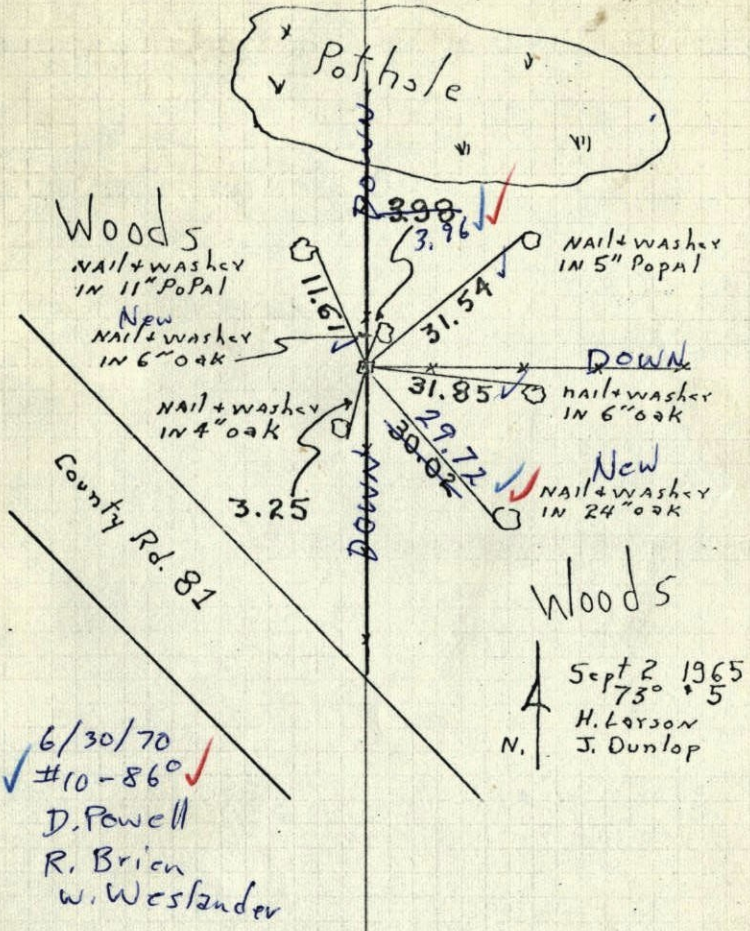 Pothole
DOWN
3.98
3.96
Woods
NAIL + WASHER
IN 11" POPAL
11.61
New
NAIL + WASHER
IN 6" OAK
31.54
NAIL + WASHER
IN 5" POPAL
DOWN
31.85
NAIL + WASHER
IN 6" OAK
NAIL + WASHER
IN 4" OAK
3.25
29.72
30.02
New
NAIL + WASHER
IN 24" OAK
DOWN
County Rd. 81
Woods
Sept 2 1965
73°
5
H. Larson
J. Dunlop
N.
6/30/70
#10 - 86°
D. Powell
R. Brien
W. Weslander